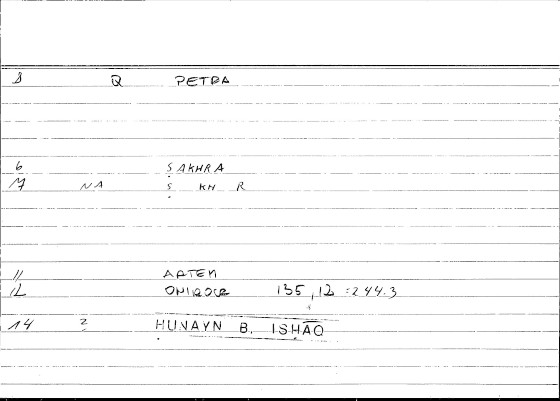 8 Q PETRA
6 SAKHRA
7 NA S KH R
11 ARTEM
12 ONIROCR 135,12 :244.3
14 2 ḤUNAYN B. ISḤĀQ